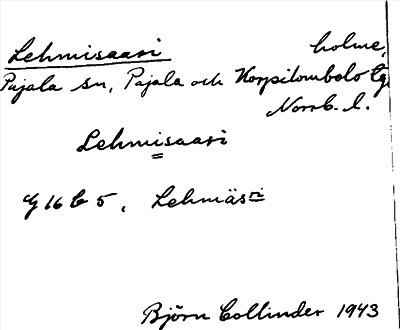 Lehmisaari holme,
Pajala sn, Pajala och Korpilombolo tg
Norrb. l.
Lehmisaari
G 16 b 5, Lehmäsri
Björn Collinder 1943